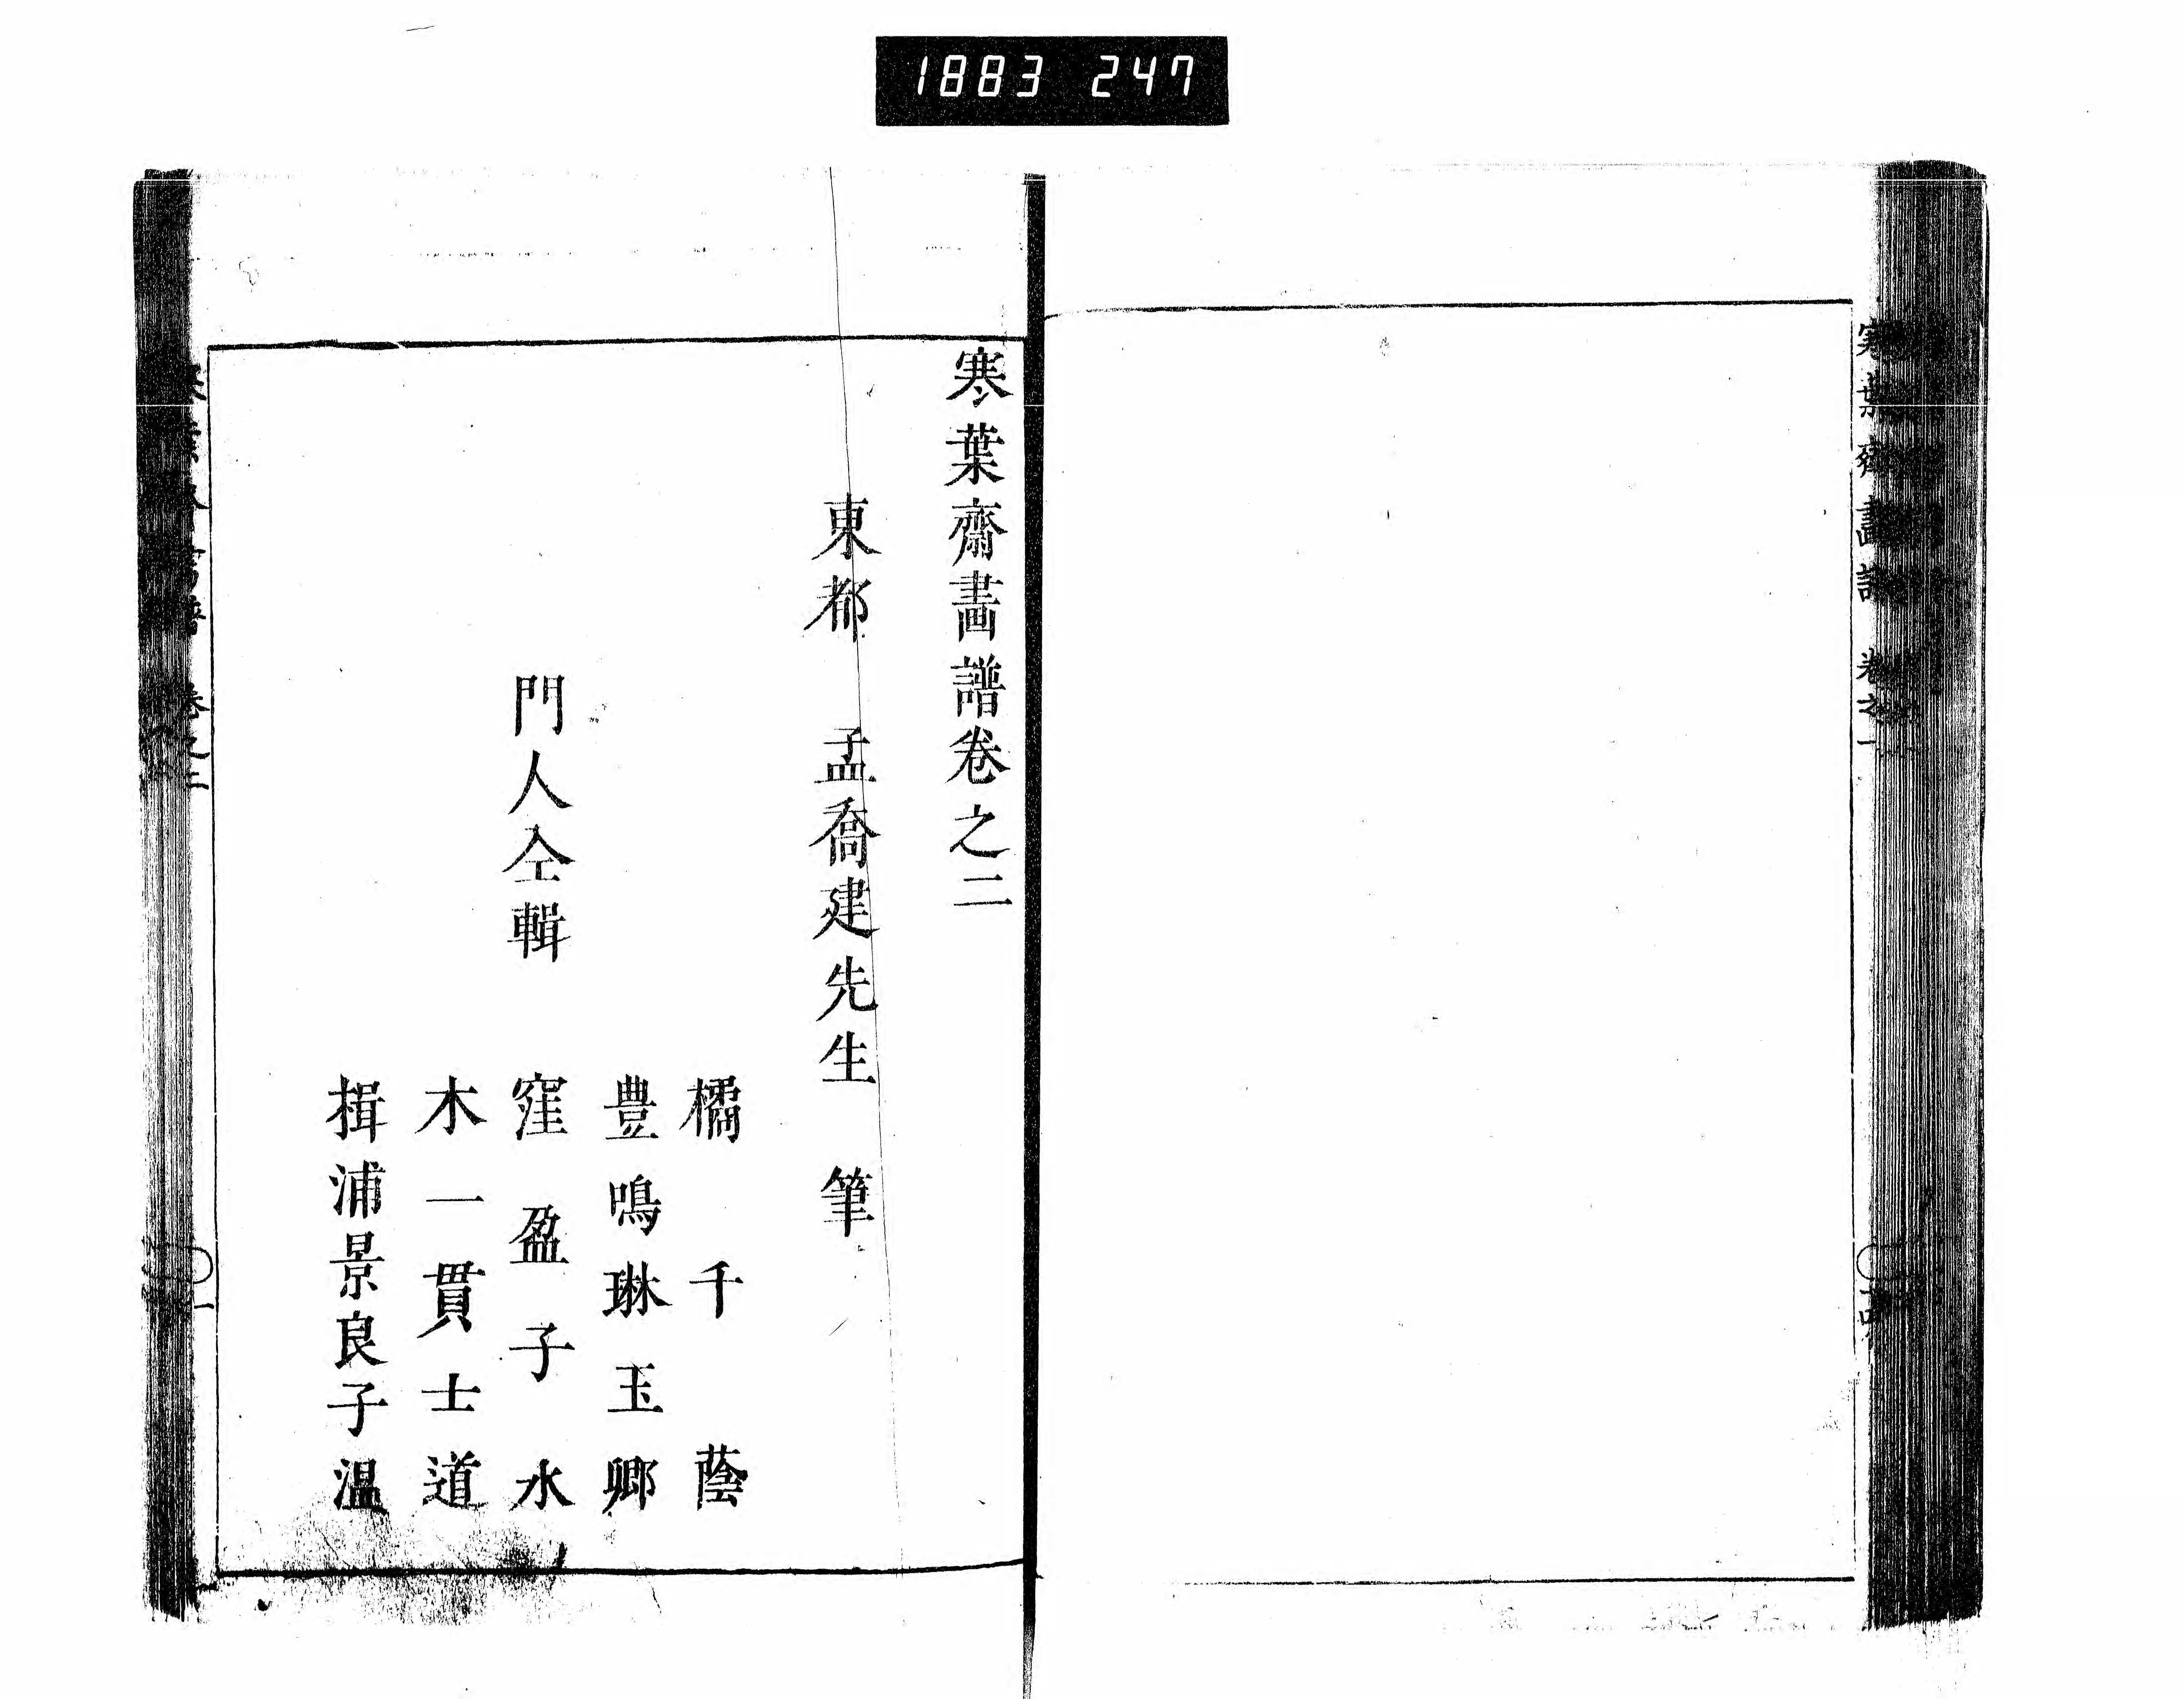 1883 247
寒葉齋畫譜 卷之一
寒葉齋畫譜卷之二
東都 孟喬建先生 筆
橘千蔭
豊鳴琳玉卿
門人仝輯 窪盈子水
木一貫士道
揖浦景良子温
卷之二
一